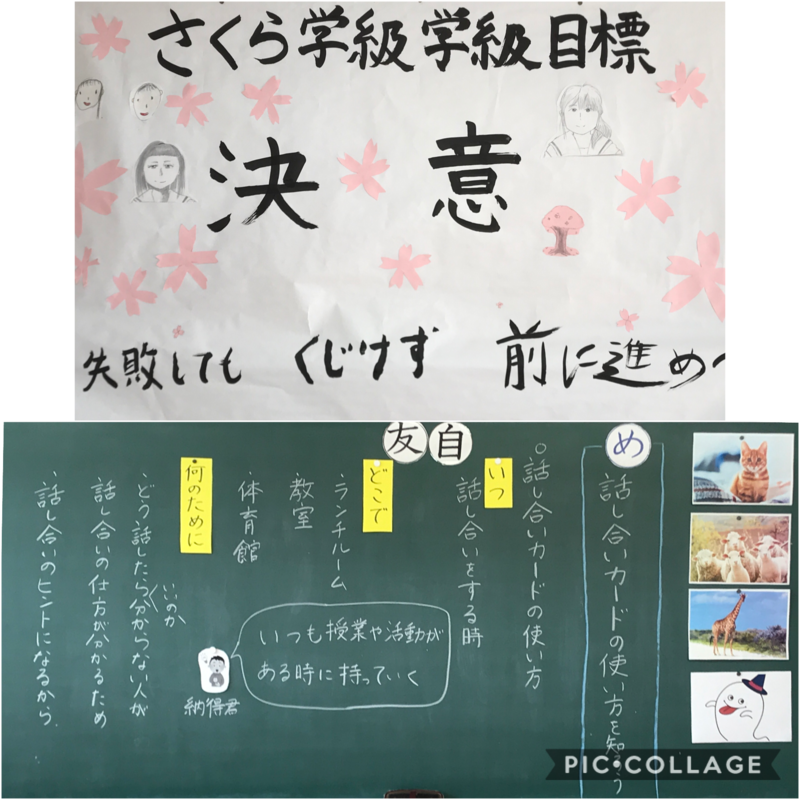 さくら学級学級目標
決意
失敗しても くじけず 前に進め
め
話し合いカードの使い方を知ろう
自
友
○話し合いカードの使い方
いつ
話し合いをする時
どこで
・ランチルーム
・教室
・体育館
いつも授業や活動が
ある時に持っていく
納得君
何のために
・どう話したら分からない人が
いいのか
話し合いの仕方が分かるため
・話し合いのヒントになるから。
PIC•COLLAGE